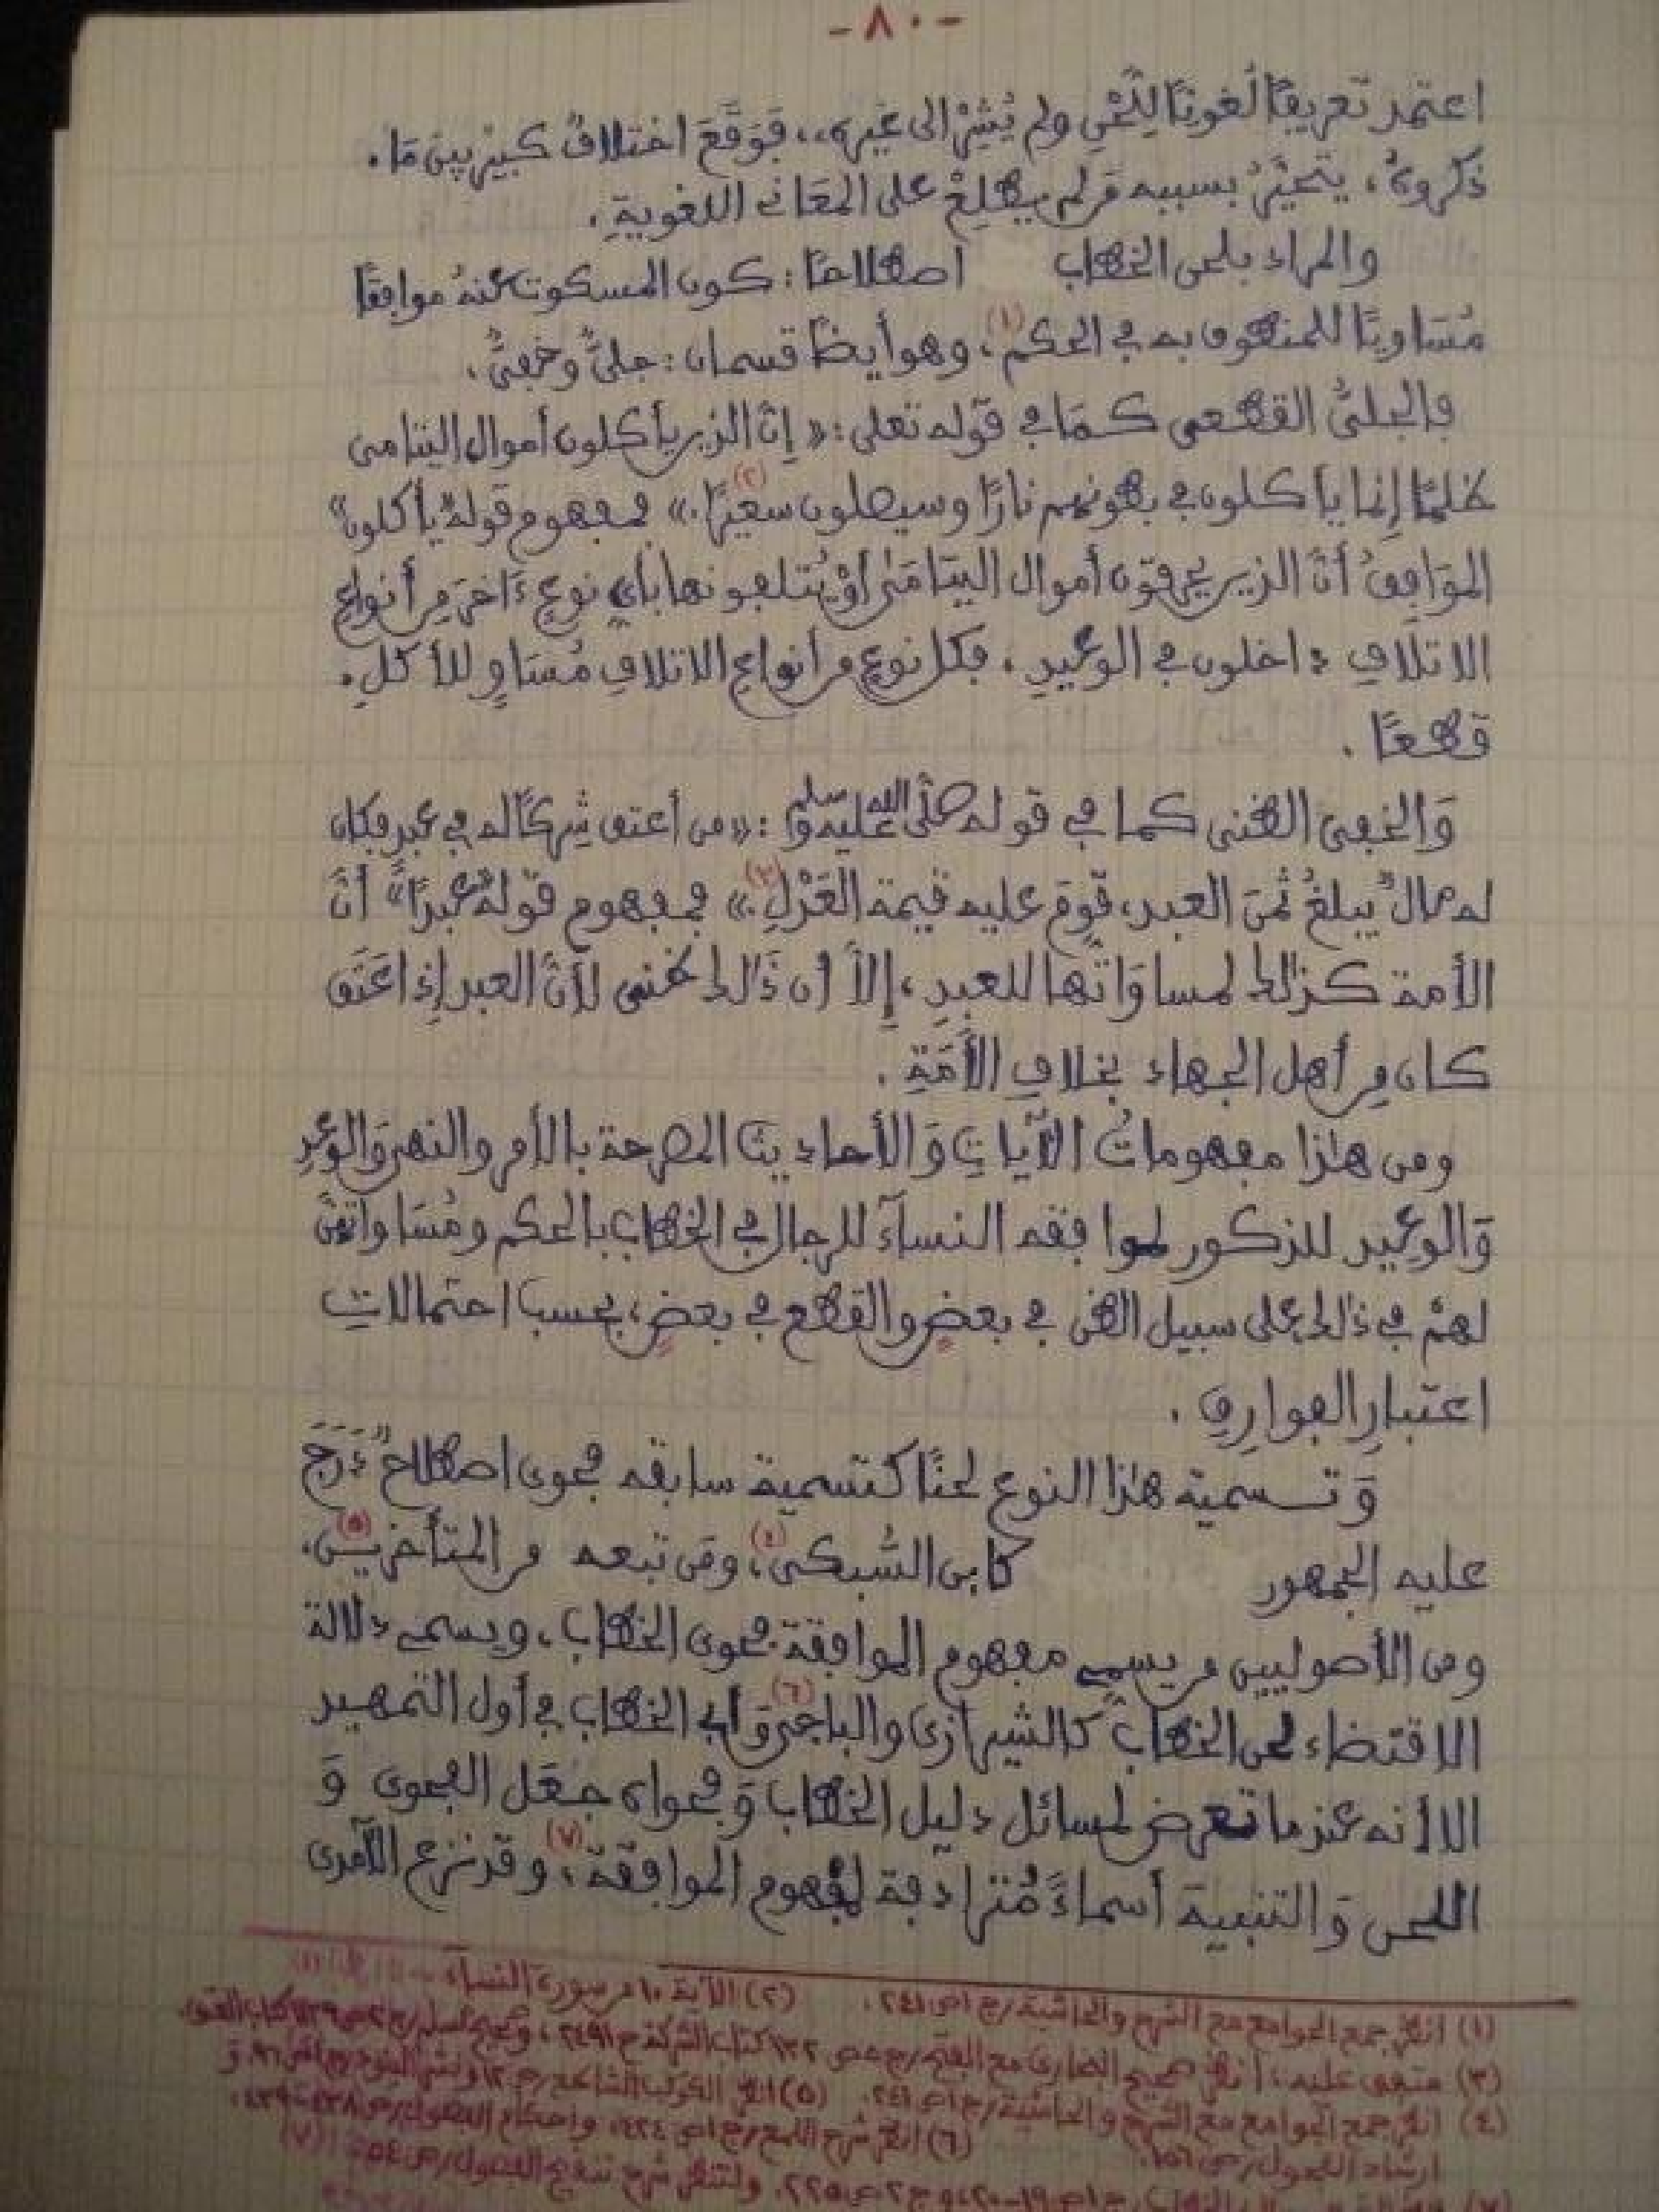 -٨٠-
اعتمد تعريفًا لُغويًا لِلَّحْنِ ولم يُشِرْ إلى غيره، فوقَعَ اختلافٌ كبيرٌ بين مَا.
ذكروهُ، يتحيَّرُ بسببه مَن لم يطلِعْ على المعَاني اللغويةِ.
والمراد بلحن الخطاب اصطلاحًا: كون المسكوت عنهُ موافقًا
مُسَاويًا للمنطوق به في الحكم (١)، وهو أيضًا قسمان: جليٌّ وخفيٌّ.
فالجليُّ القطعي كمَا في قوله تعلى: «إنَّ الذين يأكلون أموال اليتامى
ظلمًا إنما يأكلون في بطونهم نارًا وسيصلون سعيرًا.» (٢) فمفهوم قوله "يأكلون"
الموَافِقُ أنَّ الذين يحرقون أموال اليتَامَى أوْ يُتلفونها بأيِ نوعٍ ءَاخرَ مِن أنواع
الاتلَافِ داخلون في الوعيدِ، فكل نوع من أنواع الاتلافِ مُسَاوٍ للأكلِ.
قطعًا.
وَالخفي الظني كما في قوله صلَّى الله عليه وسلم: «من أعتق شِركًا له في عبد فكان
له مالٌ يبلغُ ثمنَ العبد، قُوِمَ عليه قيمة العَدْلِ.» (٣) فمفهوم قوله "عبدًا" أنَّ
الأمة كذالك لمساوَاتها للعبدِ، إلاَّ أن ذَالك ظني لأنَّ العبد إذا عَتَق
كان مِن أهل الجهاد بخلافِ الأمَةِ.
ومن هاذا مفهوماتُ الآيَاتِ وَالأحاديث المصرحة بالأمر والنهي وَالوَعدِ
وَالوعيد للذكور لموافقة النسآء للرجال في الخطاب بالحكم ومُسَاواتهنَّ
لهمْ في ذالك على سبيل الظن في بعضٍ والقطع في بعضٍ، بحسب احتمالاتِ
اعتبارِ الفوارِقِ.
وَتسمية هاذا النوع لحنًا كتسمية سابقه فحوى اصطلاحٌ دَرَجَ
عليه الجمهور كابن السُّبكي (٤)، ومَن تبعه من المتأخرين (٥).
ومن الأصوليين من يسمي مفهوم الموافقة فحوى الخطاب، ويسمي دلالة
الاقتضاء لحن الخطاب كالشيرازي والباجي (٦) وَأبي الخطاب في أول التمهيد
الا أنه عندما تعرض لمسائل دليل الخطاب وَفحواه جعَل الفحوى وَ
اللحن وَالتنبيهَ أسماءً مُترادفة لمفهوم الموافقة (٧)، وقد نزع الآمدي
(١) انظر جمع الجوامع مع الشرح والحاشية/ج١ص٢٤١. (٢) الآية ١٠ من سورة النسآء
(٣) متفق عليه: انظر صحيح البخاري مع الفتح/ج٥ص١٣٢ كتاب الشركة ح٢٤٩١،
(٤) انظر جمع الجوامع مع الشرح والحاشية/ج١ص٢٤١. (٥) انظر الكوكب الساطع/ص
ارشاد الفحول/ص١٥٦. (٦) انظر شرح اللمع/ج١ص٤٢٤، وإحكام الفصول/ص٤٣٨-٤٣٩.